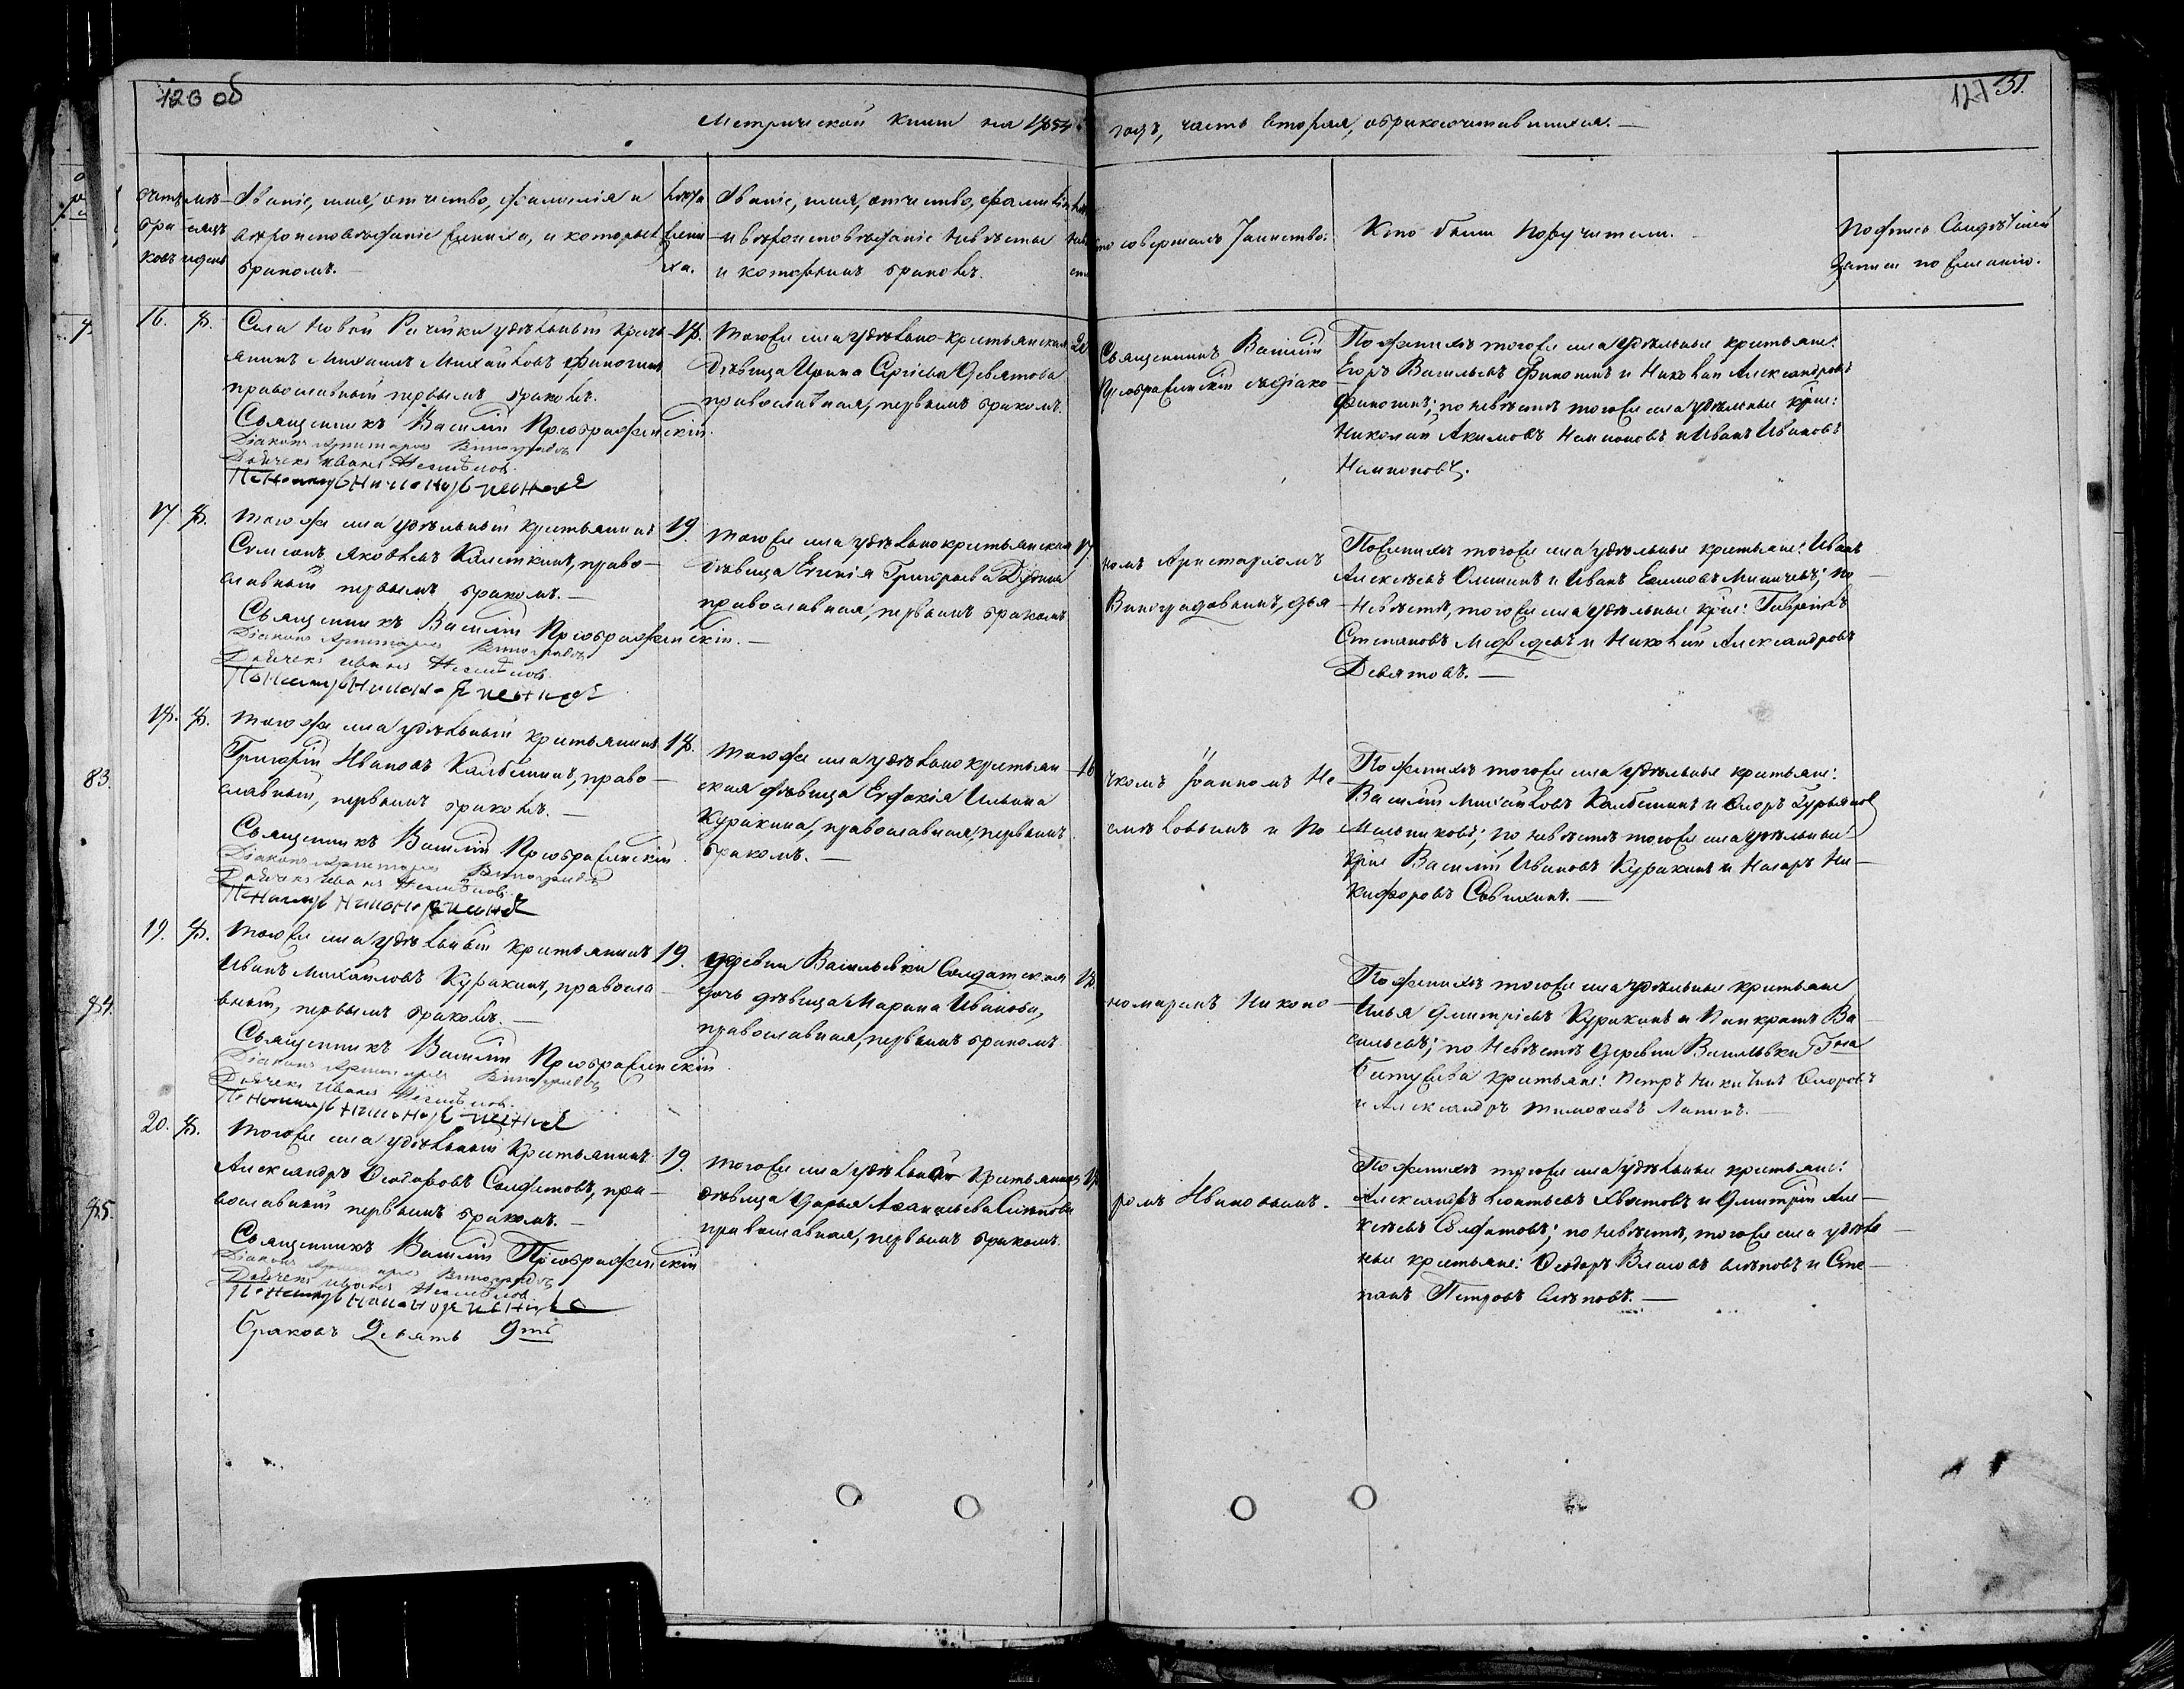 126 об
127 31.
Метрической книги на 1854
годъ, часть вторая, о бракосочетавшихся.—
Счетъ браковъ
мѣсяцъ и день
Званіе, имя, отчество, фамилія и
вѣроисповѣданіе жениха, и которымъ
бракомъ.—
лѣта жениха.
Званіе, имя, отчество, фамилія
и вѣроисповѣданіе невѣсты
и которымъ бракомъ.
Кто совершалъ Таинство:
Кто были поручители.—
Подпись Свидѣтелей
записи по желанію.
16. 8.
Села Новой Рачейки удѣльный кресть-
янинъ Михаилъ Михайловъ Финогинъ
православный первымъ бракомъ.
Священникъ Василій Преображенскій.
Діаконъ Аристархъ Виноградовъ
Дьячекъ Иванъ Несмѣловъ.
18.
Тогоже села удѣльно-крестьянская
дѣвица Ирина Сергѣева Девятова
православная, первымъ бракомъ.
20
Священникъ Василій
Преображенскій съ діако-
По женихѣ тогоже села удѣльные крестьяне:
Егоръ Васильевъ Финогинъ и Николай Александровъ
Финогинъ; по невѣстѣ тогоже села удѣльные кр-не:
Николай Акимовъ и Иванъ Ивановъ
17. 8.
Тогоже села удѣльный крестьянинъ
Симеонъ Яковлевъ Калеткинъ, право-
славный первымъ бракомъ.—
Священникъ Василій Преображенскій.—
Діаконъ Аристархъ Виноградовъ
Дьячекъ Иванъ Несмѣловъ.
19.
Тогоже села удѣльно крестьянская
дѣвица Евгенія Григорьева
православная, первымъ бракомъ
17.
номъ Аристархомъ
Виноградовымъ, дья-
По женихѣ тогоже села удѣльные крестьяне: Иванъ
Алексѣевъ и Иванъ Ефимовъ; по
невѣстѣ, тогоже села удѣльные кр-не: Гавріилъ
Степановъ Медведевъ и Николай Александровъ
Девятовъ.—
18. 8.
Тогоже села удѣльный крестьянинъ
Григорій Ивановъ Калбешинъ, право-
славный, первымъ бракомъ.—
Священникъ Василій Преображенскій
Діаконъ Аристархъ Виноградовъ
Дьячекъ Иванъ Несмѣловъ.
18.
Тогоже села удѣльно крестьян-
ская дѣвица Евдокія Ильина
Куракина, православная, первымъ
бракомъ.—
16
чкомъ Іоанномъ Не-
смѣловымъ и По-
По женихѣ тогоже села удѣльные крестьяне:
Василій Михайловъ Калбешинъ и Ѳедоръ Гурьяновъ
Мельниковъ; по невѣстѣ тогоже села удѣльные
кр-не Василій Ивановъ Куракинъ и Назаръ Ни-
кифоровъ.—
19. 8.
Тогоже села удѣльный крестьянинъ
Иванъ Михайловъ Куракинъ, правосла-
вный, первымъ бракомъ.—
Священникъ Василій Преображенскій.
Діаконъ Аристархъ Виноградовъ
Дьячекъ Иванъ Несмѣловъ.
19.
деревни Васильевки Солдатская
дочь дѣвица Марина Иванова,
православная, первымъ бракомъ.
18.
номаремъ Никоно-
По женихѣ тогоже села удѣльные крестьяне
Илья Дмитріевъ Куракинъ и Панкратъ Ва-
сильевъ; по невѣстѣ деревни Васильевки Г-на
крестьяне: Петръ Никитинъ Ѳедоровъ
и Александръ Тимоѳеевъ Лапинъ.—
20. 8.
Тогоже села удѣльный крестьянинъ
Александръ Ѳеодоровъ Солдатовъ, пра-
вославный первымъ бракомъ.—
Священникъ Василій Преображенскій
Діаконъ Аристархъ Виноградовъ
Дьячекъ Иванъ Несмѣловъ
19.
Тогоже села удѣльная крестьянская
дѣвица Дарья Аѳанасьева Слѣпова
православная, первымъ бракомъ.
ромъ Ивановымъ.
По женихѣ тогоже села удѣльные крестьяне:
Александръ Леонтьевъ и Дмитрій Але-
ксѣевъ Солдатовъ; по невѣстѣ, тогоже села удѣль-
ные крестьяне: Ѳеодоръ Власовъ Слѣповъ и Сте-
панъ Петровъ Слѣповъ.—
Браковъ Девять 9ть
83.
84.
85.